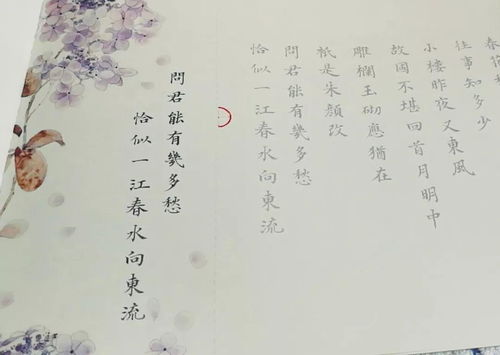 春花
往事知多少
小樓昨夜又東風
故国不堪回首月明中
雕欄玉砌應猶在
祇是朱顏改
問君能有幾多愁
恰似一江春水向東流
問君能有幾多愁
恰似一江春水向東流